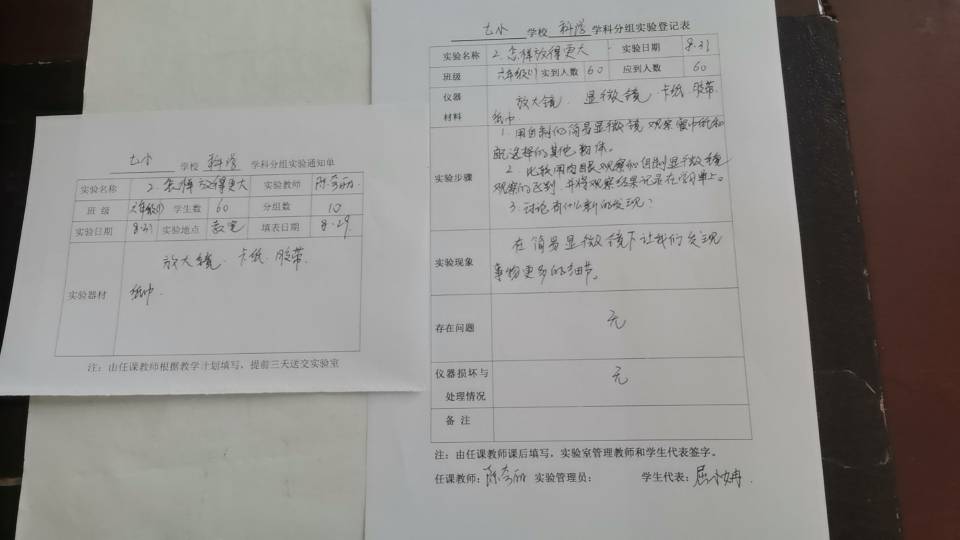 七小 学校 科学 学科分组实验通知单
实验名称 2.怎样放得更大 实验教师
班 级 六年级(1) 学生数 60 分组数 10
实验日期 8.31 实验地点 教室 填表日期 8.29
实验器材 放大镜、卡纸、胶带、
纸巾.
注：由任课教师根据教学计划填写，提前三天送交实验室
七小 学校 科学 学科分组实验登记表
实验名称 2.怎样放得更大 实验日期 8.31
班级 六年级(1) 实到人数 60 应到人数 60
仪器 放大镜、显微镜、卡纸、胶带
材料 纸巾
实验步骤
1.用自制的简易显微镜观察餐巾纸和
选择的其他物体。
2.比较用肉眼观察和自制显微镜
观察的区别,并将观察结果记录在学习单上。
3.讨论有什么新的发现?
实验现象 在简易显微镜下让我们发现
事物更多的细节。
存在问题 无
仪器损坏与
处理情况 无
备 注
注：由任课教师课后填写，实验室管理教师和学生代表签字。
任课教师： 实验管理员： 学生代表：